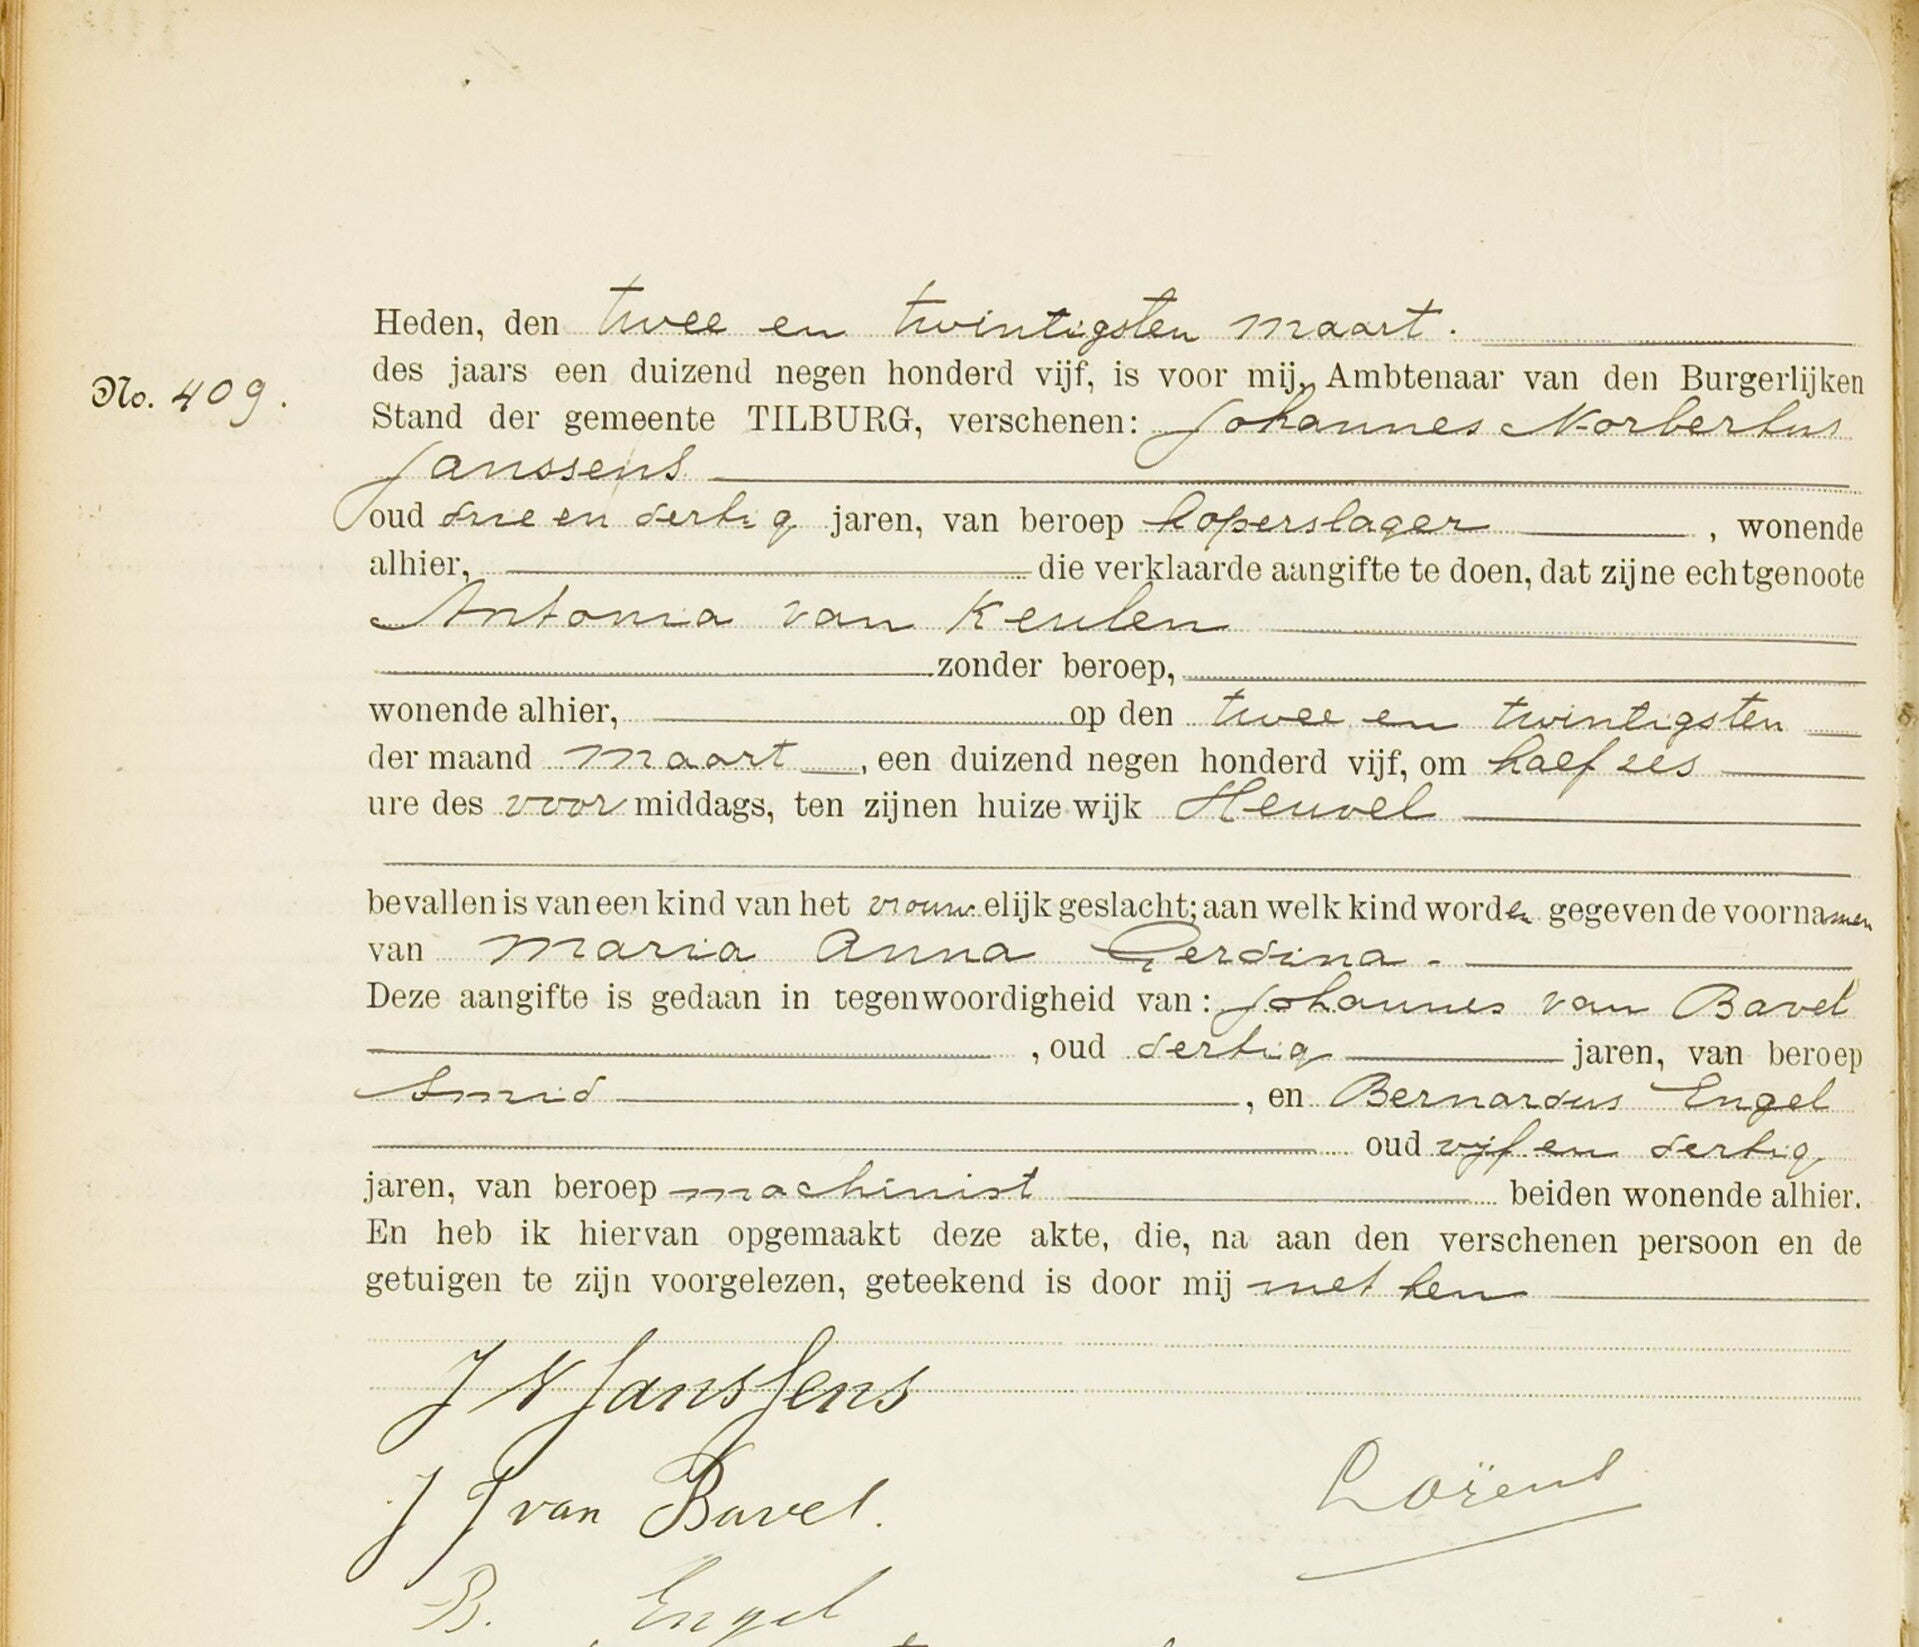 Heden, den twee en twintigsten maart.
des jaars een duizend negen honderd vijf, is voor mij, Ambtenaar van den Burgerlijken
No. 409.
Stand der gemeente TILBURG, verschenen: Johannes Norbertus
Janssens
oud drie en dertig jaren, van beroep koperslager, wonende
alhier, die verklaarde aangifte te doen, dat zijne echtgenoote
Antonia van Keulen
zonder beroep,
wonende alhier, op den twee en twintigsten
der maand maart, een duizend negen honderd vijf, om half zes
ure des voormiddags, ten zijnen huize wijk Heuvel
bevallen is van een kind van het vrouwelijk geslacht; aan welk kind worden gegeven de voornamen
van Maria Anna Gerdina.
Deze aangifte is gedaan in tegenwoordigheid van: Johannes van Bavel
, oud dertig jaren, van beroep
smid, en Bernardus Engel
oud vijf en dertig
jaren, van beroep machinist beiden wonende alhier.
En heb ik hiervan opgemaakt deze akte, die, na aan den verschenen persoon en de
getuigen te zijn voorgelezen, geteekend is door mij met hen
J N Janssens
J J van Bavel.
B. Engel